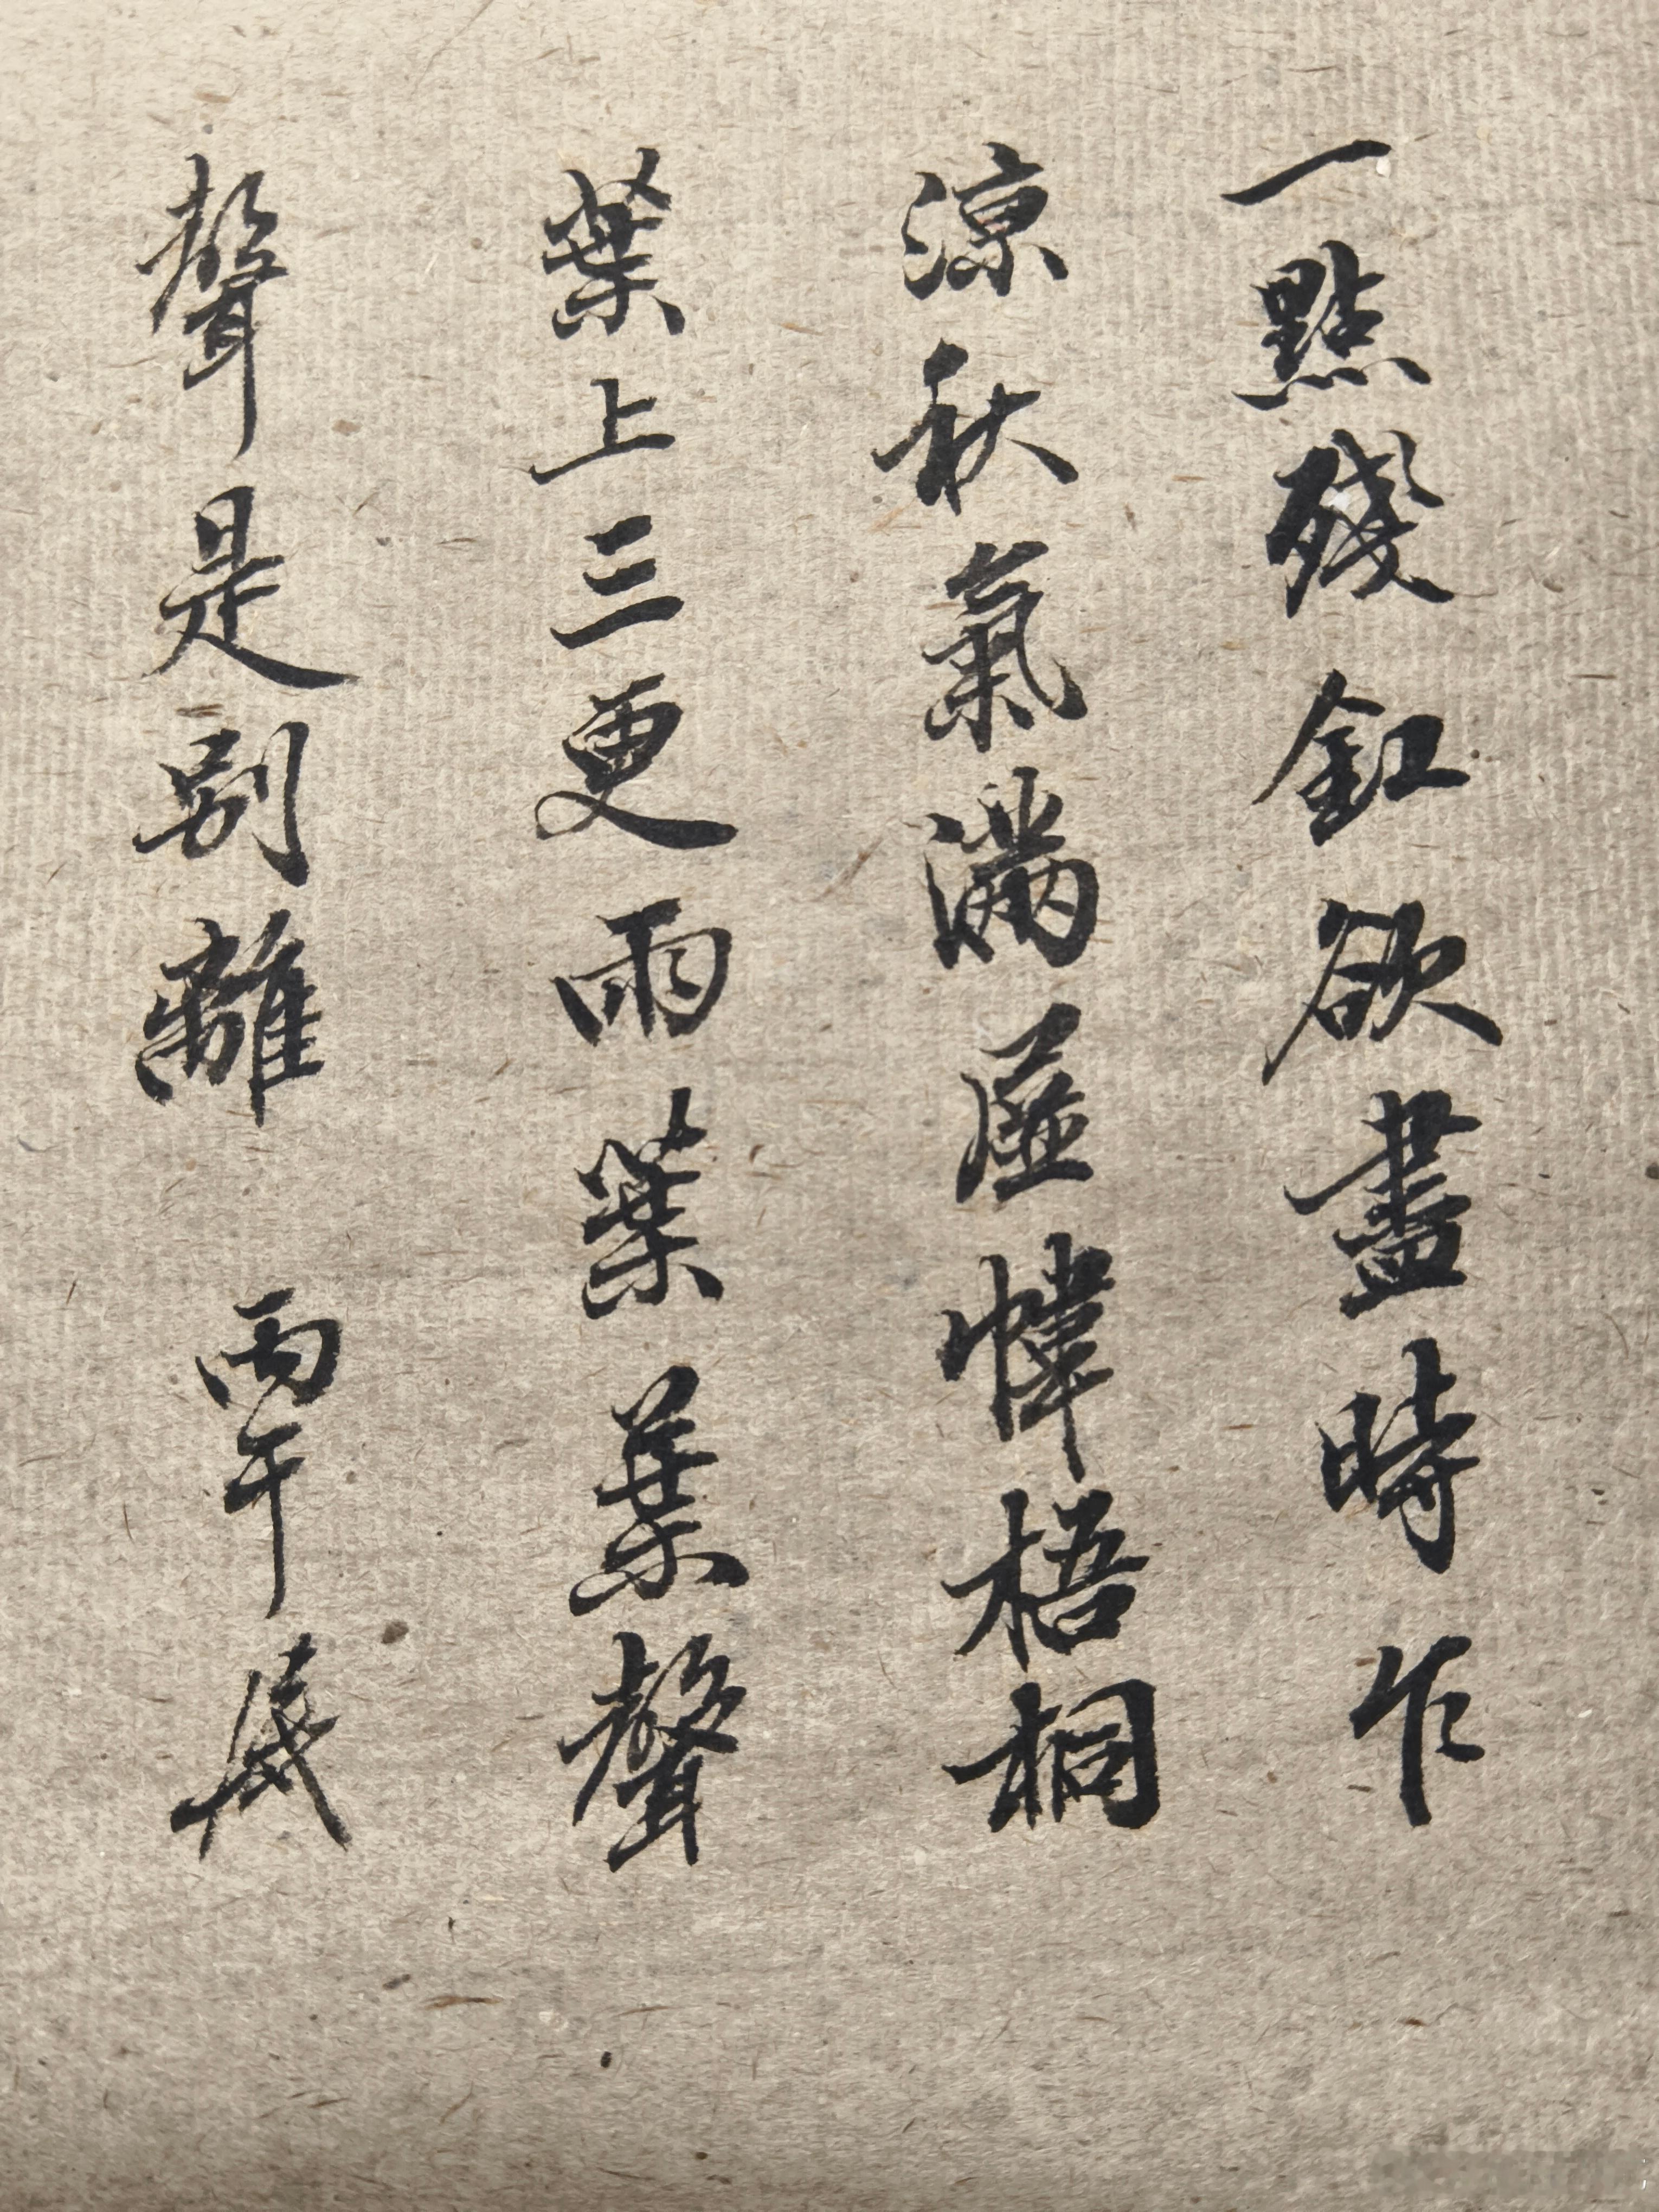 一點殘釭欲盡時乍
涼秋氣滿屏幃梧桐
葉上三更雨葉葉聲
聲是別離 丙午 歲